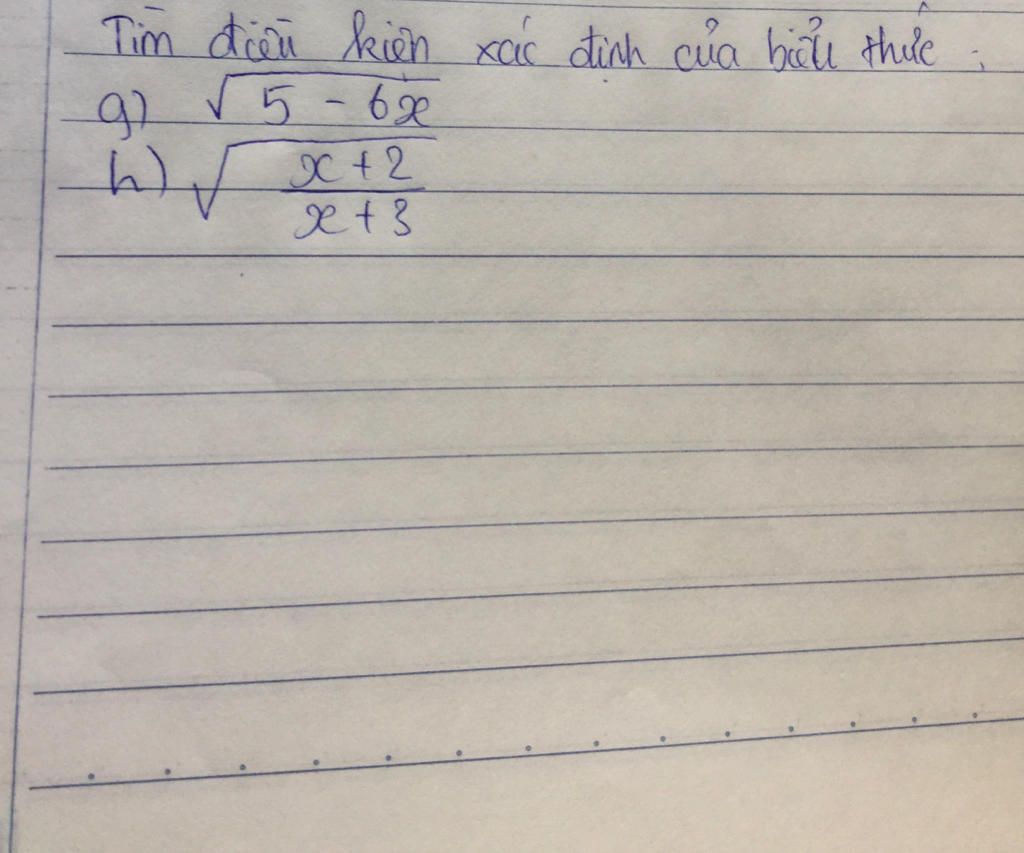 Tìm điều kiện xác định của biểu thức :
g) √5 - 6x
h) √x + 2
x + 3